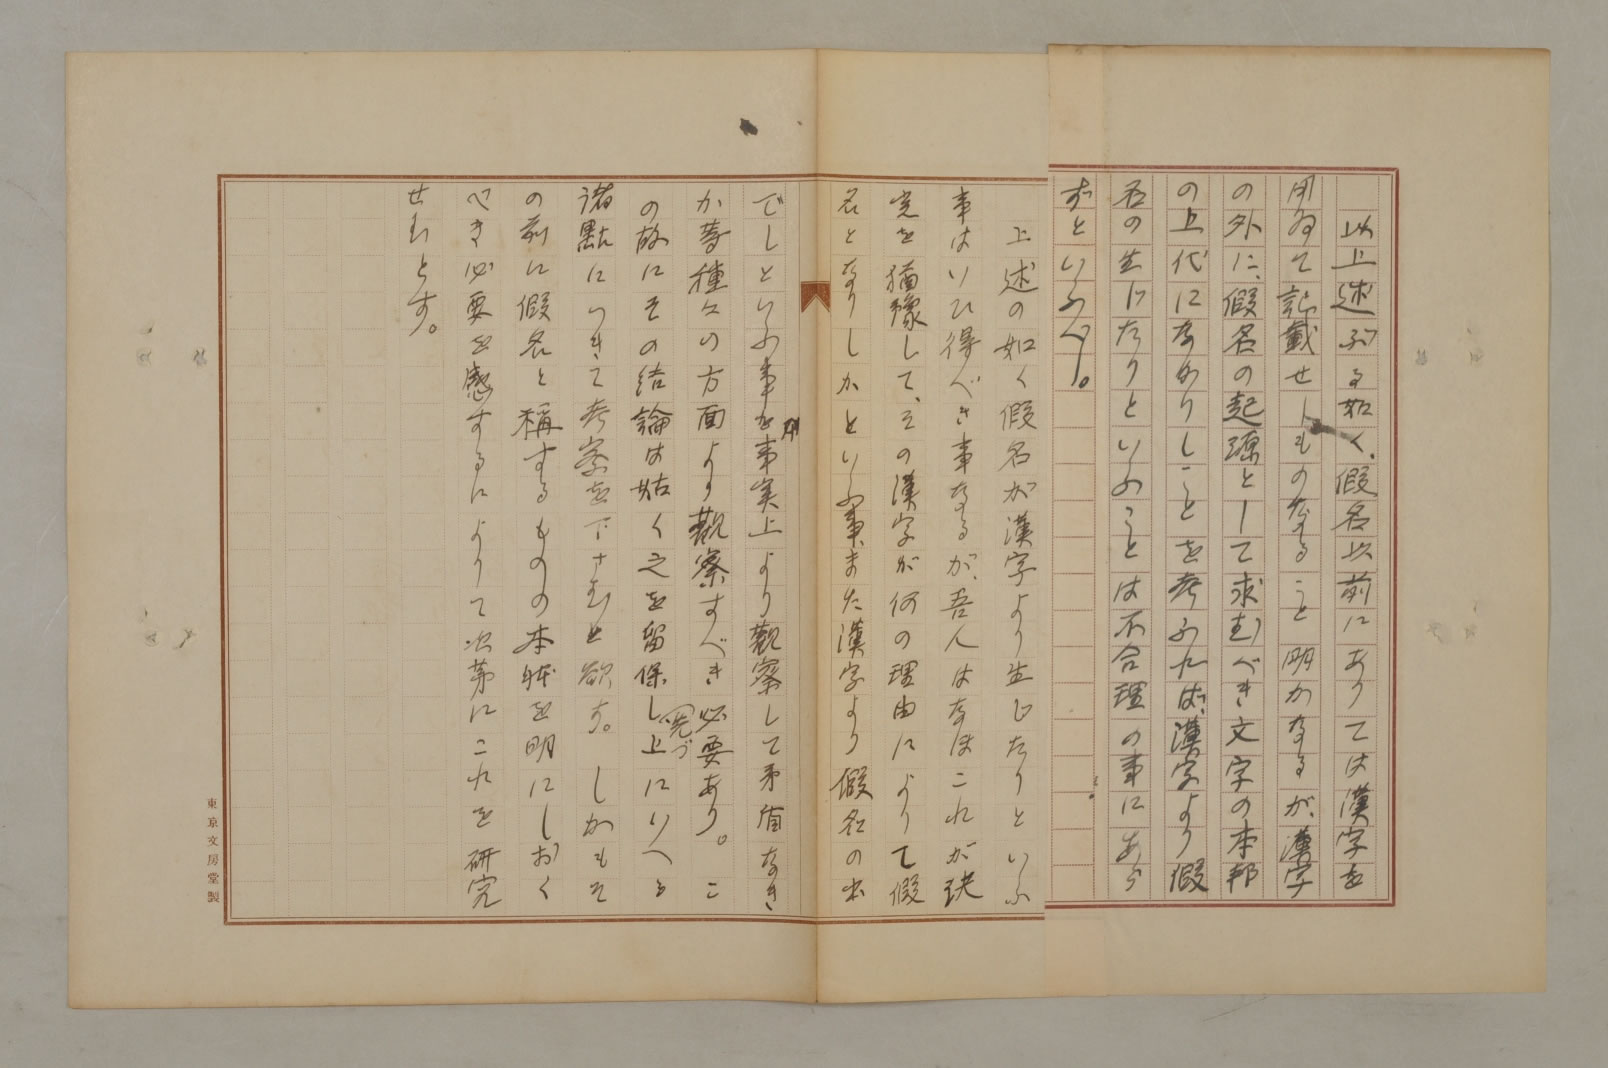 以上述ぶる如く、假名以前にありては漢字を
用ゐて記載せしものなること明かなるが、漢字
の外に、假名の起源として求むべき文字の本邦
の上代になかりしことを考ふれば、漢字より假
名の生じたりといふことは不合理の事にあら
ずといふべし。
上述の如く假名が漢字より生じたりといふ
事はいひ得べき事なるが、吾人はなほこれが決
定を猶豫して、その漢字が何の理由によりて假
名となりしかといふ事、また漢字より假名の出
でしといふ事を事実上より觀察して矛盾なき
か等種々の方面より觀察すべき必要あり。こ
の故にその結論は姑く之を留保し上にいへる
先づ
諸點につきて考察を下さむと欲す。しかもそ
の前に假名と稱するものの本体を明にしおく
べき必要を感ずるによりて次第にこれを研究
せむとす。
東京文房堂製